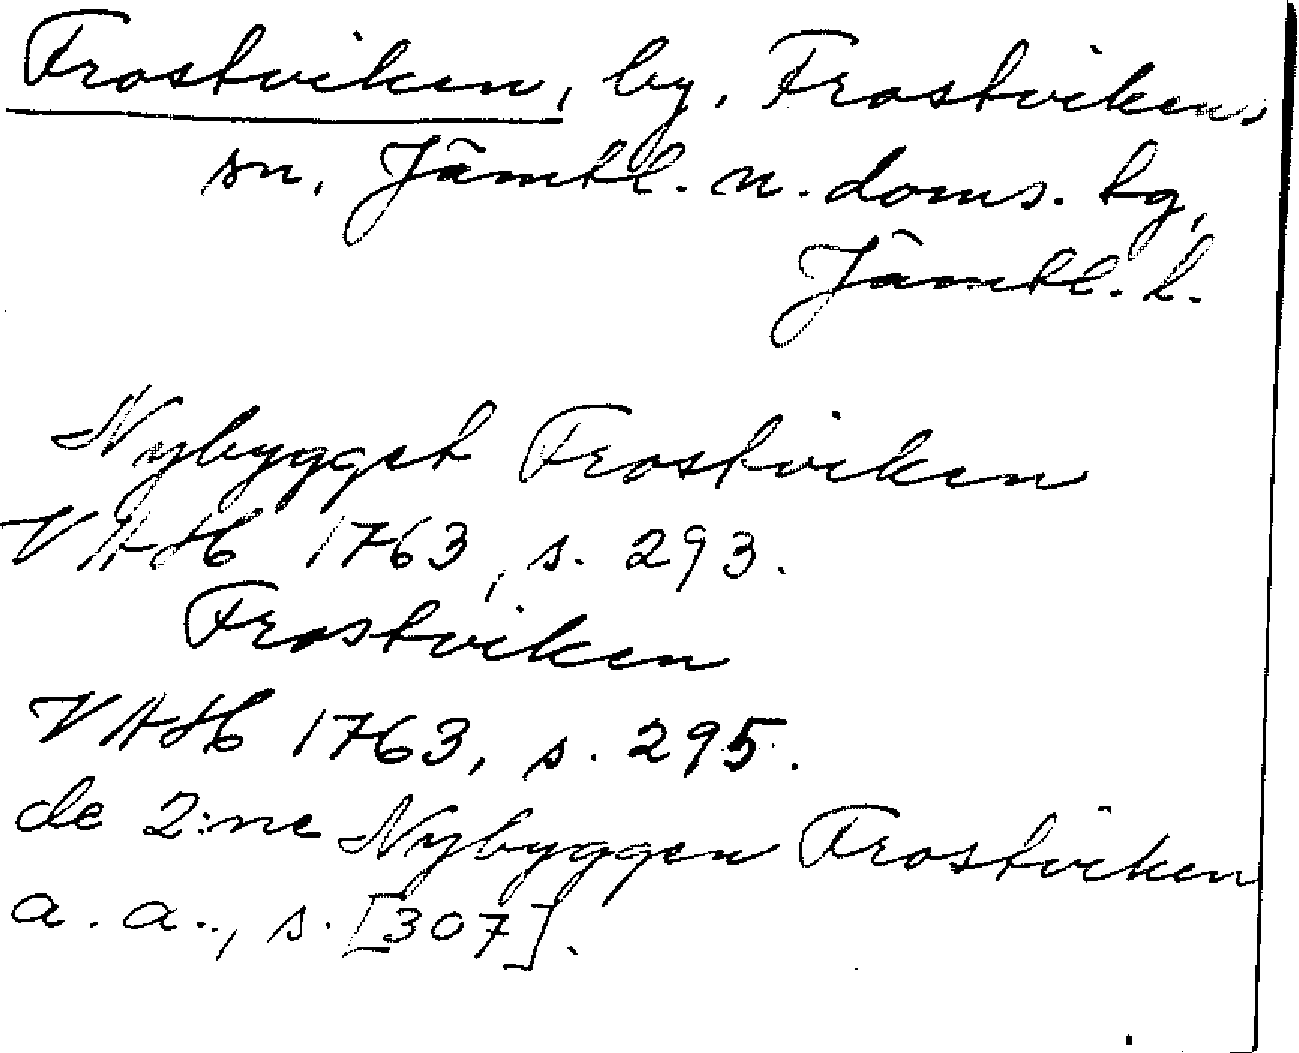 Frostviken, by, Frostvikens
sn, Jämtl. n. doms. tg,
Jämtl. l.
Nybygget Frostviken
VAH 1763, s. 293.
Frostviken
VAH 1763, s. 295.
de 2:ne Nybyggen Frostviken
a. a., s. [307].